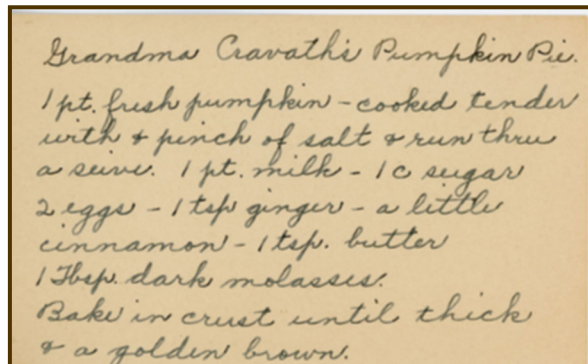 Grandma Cravath's Pumpkin Pie.
1 pt. fresh pumpkin - cooked tender
with & pinch of salt & run thru
a seive. 1 pt. milk - 1 c sugar
2 eggs - 1 tsp ginger - a little
cinnamon - 1 tsp. butter
1 Tbsp. dark molasses.
Bake in crust until thick
& a golden brown.